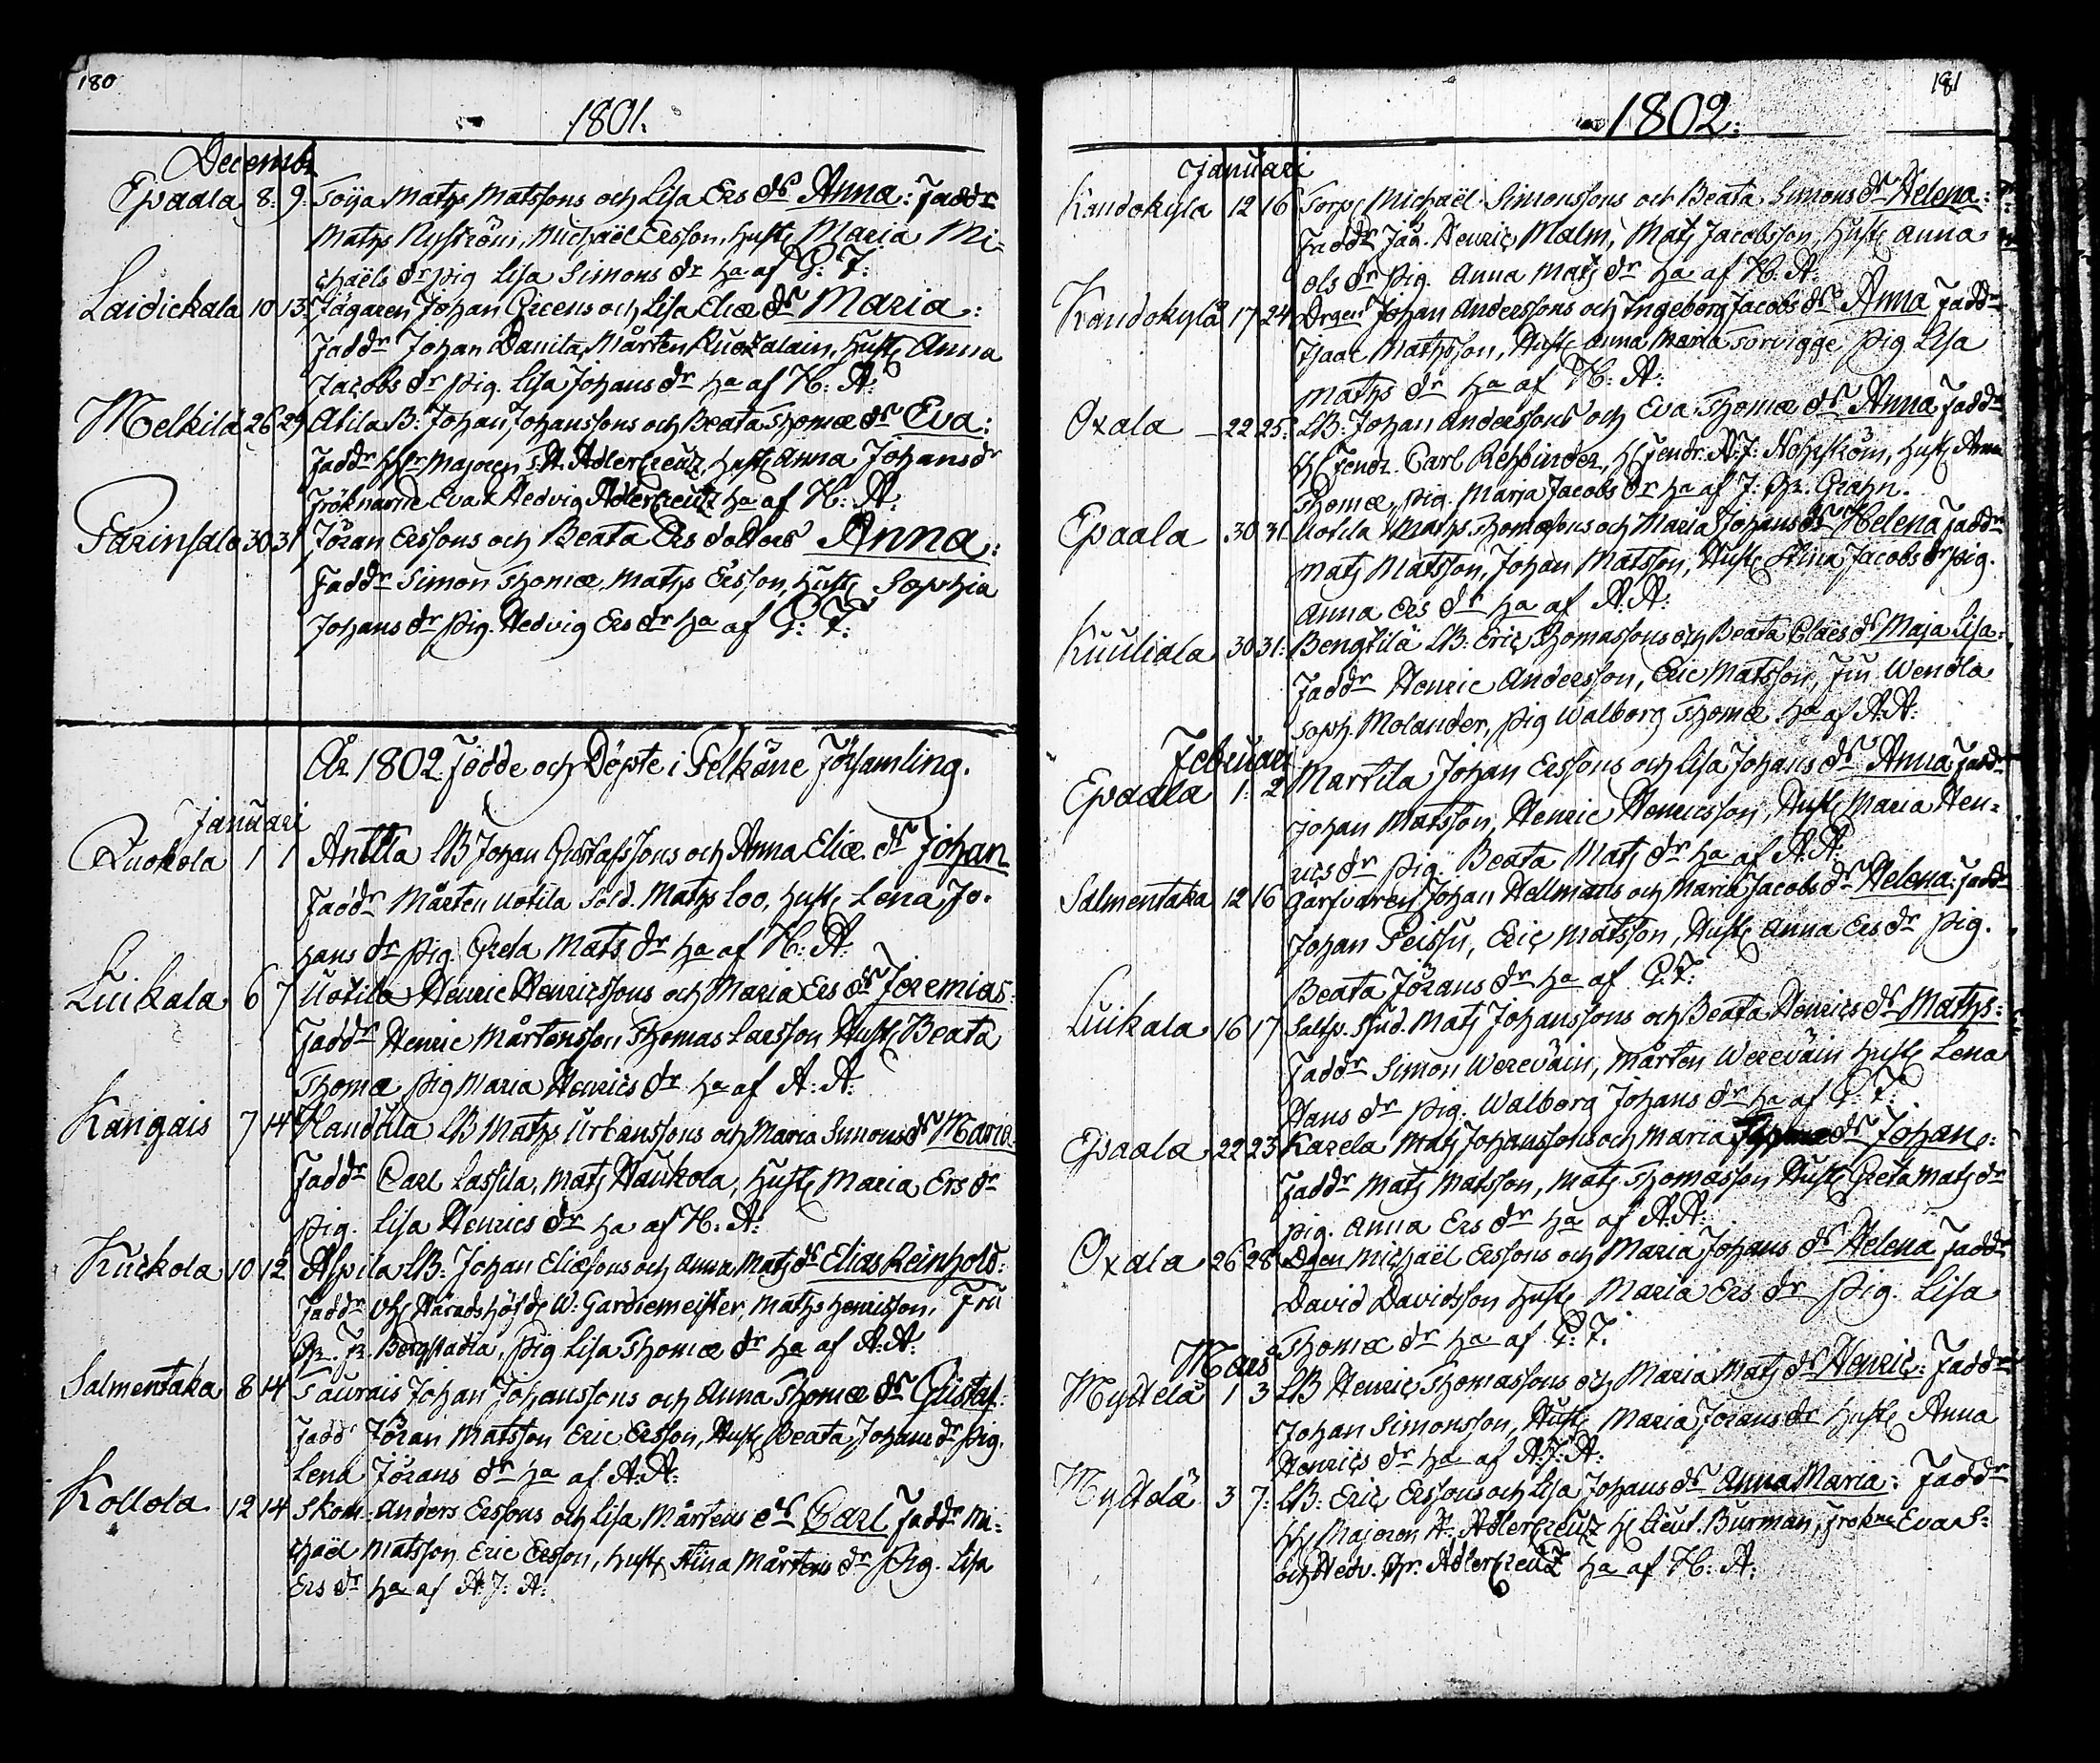 180
1801.
Decembr
Epaala 8: 9: Toija Maths Matssons och Lisa Ers dr Anna: Faddr
Maths Nyström, Michaël Ersson, Hust Maria Mi-
chaëls dr pig Lisa Simons dr ha af G: F:
Laidickala 10 13 Jägaren Johan Greens och Lisa Eliæ dr Maria:
Faddr Johan Danila, Mårten, Hust Anna
Jacobs dr pig. Lisa Johans dr ha af H: A:
Melkild 26 29 Atila B: Johan Johanssons och Beata Thomæ dr Eva:
Faddr Majoren Adlercreutz, Hust Anna Johans dr
Fröknarne Eva & Hedvig Adlercreutz ha af H: A:
Parinsalo 30 31 Jöran Erssons och Beata Ers dotters Anna:
Faddr Simon Thomæ, Maths Ersson, Hust Sophia
Johans dr pig. Hedvig Ers dr ha af G: F:
År 1802 Födde och Döpte i Pelkäne Församling.
Januari
Ruokola 1 1 Anttila LB Johan Gustafssons och Anna Eliæ dr Johan
Faddr Mårten Uotila Sold. Maths Loo, Hust Lena Jo-
hans dr pig Greta Mats dr ha af H: A:
Luikala 6 7 Uotila Henric Henricssons och Maria Ers dr Jeremias:
Faddr Henric Mårtensson Thomas Larsson Hust Beata
Thomæ pig Maria Henrics dr ha af A: A:
Kangais 7 14 Klandula LB Maths Urbanssons och Maria Simons dr Maria:
Faddr Carl Lassila, Mats Haukola, Hust Maria Ers dr
pig. Lisa Henrics dr ha af H: A:
Kuckola 10 12 Alpila LB: Johan Eliæsons och Anna Mats dr Elias Reinhold:
Faddr Häradshöfd W: Gardiemeister, Maths Henrisson, Fru
Bergstadia, pig Lisa Thomæ dr ha af A: A:
Salmentaka 8 14 Taurais Johan Johanssons och Anna Thomæ dr Gustaf:
Faddr Jöran Matsson Eric Ersson, Hust Beata Johans dr pig.
Lena Jörans dr ha af A: A:
Kollola 12 14 Skom: Anders Erssons och Lisa Mårtens dr Carl Faddr Mi-
chaël Matsson Eric Ersson, Hust Stina Mårtens dr pig. Lisa
Ers dr ha af A: J: A:
181
1802:
Januari
Kaudokyla 12 16 Torp Michaël Simonssons och Beata Simons dr Helena:
Faddr Jäg. Henric Malm, Mats Jacobsson, Hust Anna
ols dr pig. Anna Mats dr ha af H. A:
Kaudokylä 17 24 Drgen Johan Anderssons och Ingeborg Jacobs dr Anna Faddr
Isaac Mathsson, Hust Anna Maria Torvigge, pig Lisa
Maths dr ha af H: A:
Oxala 22 25: LB: Johan Anderssons och Eva Thomæ dr Anna Faddr
Fendr. Carl Rehbinder, Fendr. A: J: Nohrström, Hust Anna
Thomæ, pig. Maria Jacobs dr ha af J: Grahn.
Epaala 30 31 Uotila Maths Thomæsons och Maria Johans dr Helena Faddr
Mats Matsson, Johan Matsson, Hust Stina Jacobs dr pig.
Anna Ers dr ha af A: A:
Kuuliala 30 31: Bengtilä LB: Eric Thomassons och Beata Claës dr Maja Lisa:
Faddr Henric Andersson, Eric Matsson, Fru Wendla
Soph. Molander, pig Walborg Thomæ ha af A: A:
Februari
Epaala 1: 2 Marttila Johan Erssons och Lisa Johans dr Anna Faddr
Johan Matsson, Henric Henricsson, Hust Maria Hen-
rics dr pig Beata Mats dr ha af A: A:
Salmentaka 12 16 Garfvaren Johan Hellmans och Maria Jacobs dr Helena: Faddr
Johan Peissu, Eric Matsson, Hust Anna Ers dr pig.
Beata Jörans dr ha af G: F:
Luikala 16 17 Saltp. Sjud. Mats Johanssons och Beata Henrics dr Maths:
Faddr Simon Wereväin, Mårten Wereväin Hust Lena
Hans dr pig. Walborg Johans dr ha af G: F:
Epaala 22 23 Karela Mats Johanssons och Maria dr Johan:
Faddr Mats Matsson, Mats Thomasson Hust Greta Mats dr
pig. Anna Ers dr ha af A: A:
Oxala 26 28 Dgen Michaël Erssons och Maria Johans dr Helena Faddr
David Davidsson Hust Maria Ers dr pig. Lisa
Thomæ dr ha af G: F.
Mars
Myttelä 1 3 LB Henric Thomassons och Maria Mats dr Henric: Faddr
Johan Simonsson, Hust Maria Jörans dr Hust Anna
Henrics dr ha af A: J: A:
Myttelä 3 7: LB: Eric Erssons och Lisa Johans dr Anna Maria: Faddr
Majoren A: Adlercreutz H Lieut. Burman, Frökne Eva S:
och Hedv. Adlercreutz ha af H: A: